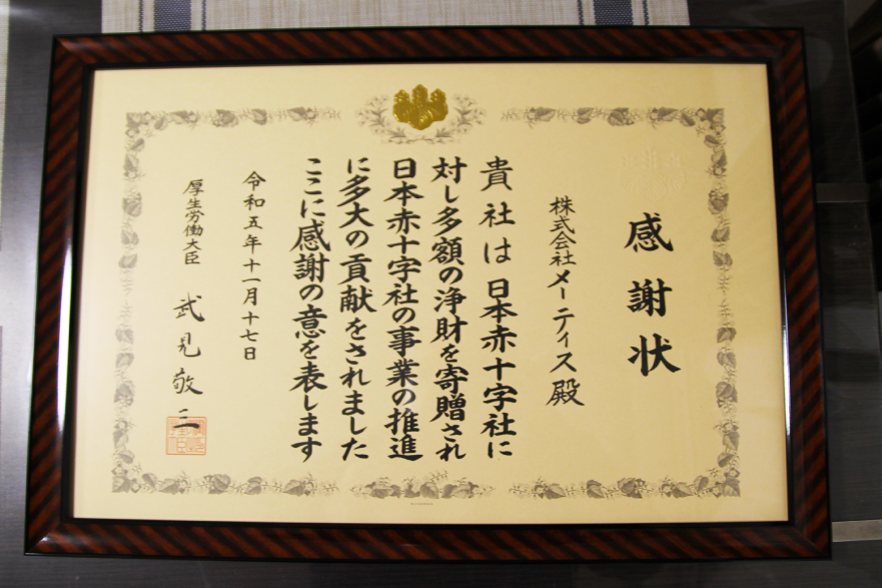 感謝状
株式会社メーティス殿
貴社は日本赤十字社に
対し多額の浄財を寄贈され
日本赤十字社の事業の推進
に多大の貢献をされました
ここに感謝の意を表します
令和五年十一月十七日
厚生労働大臣 武見敬三